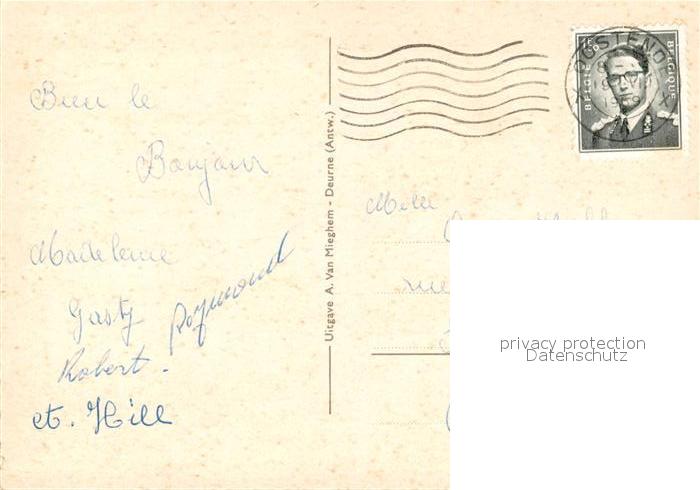 Bien le
Bonjour
Madeleine
Gasty
Raymond
Robert.
et. Hill
Uitgave A. Van Mieghem - Deurne (Antw.)
OOSTENDE
BELGIE BELGIQUE
Melle
rue
privacy protection
Datenschutz